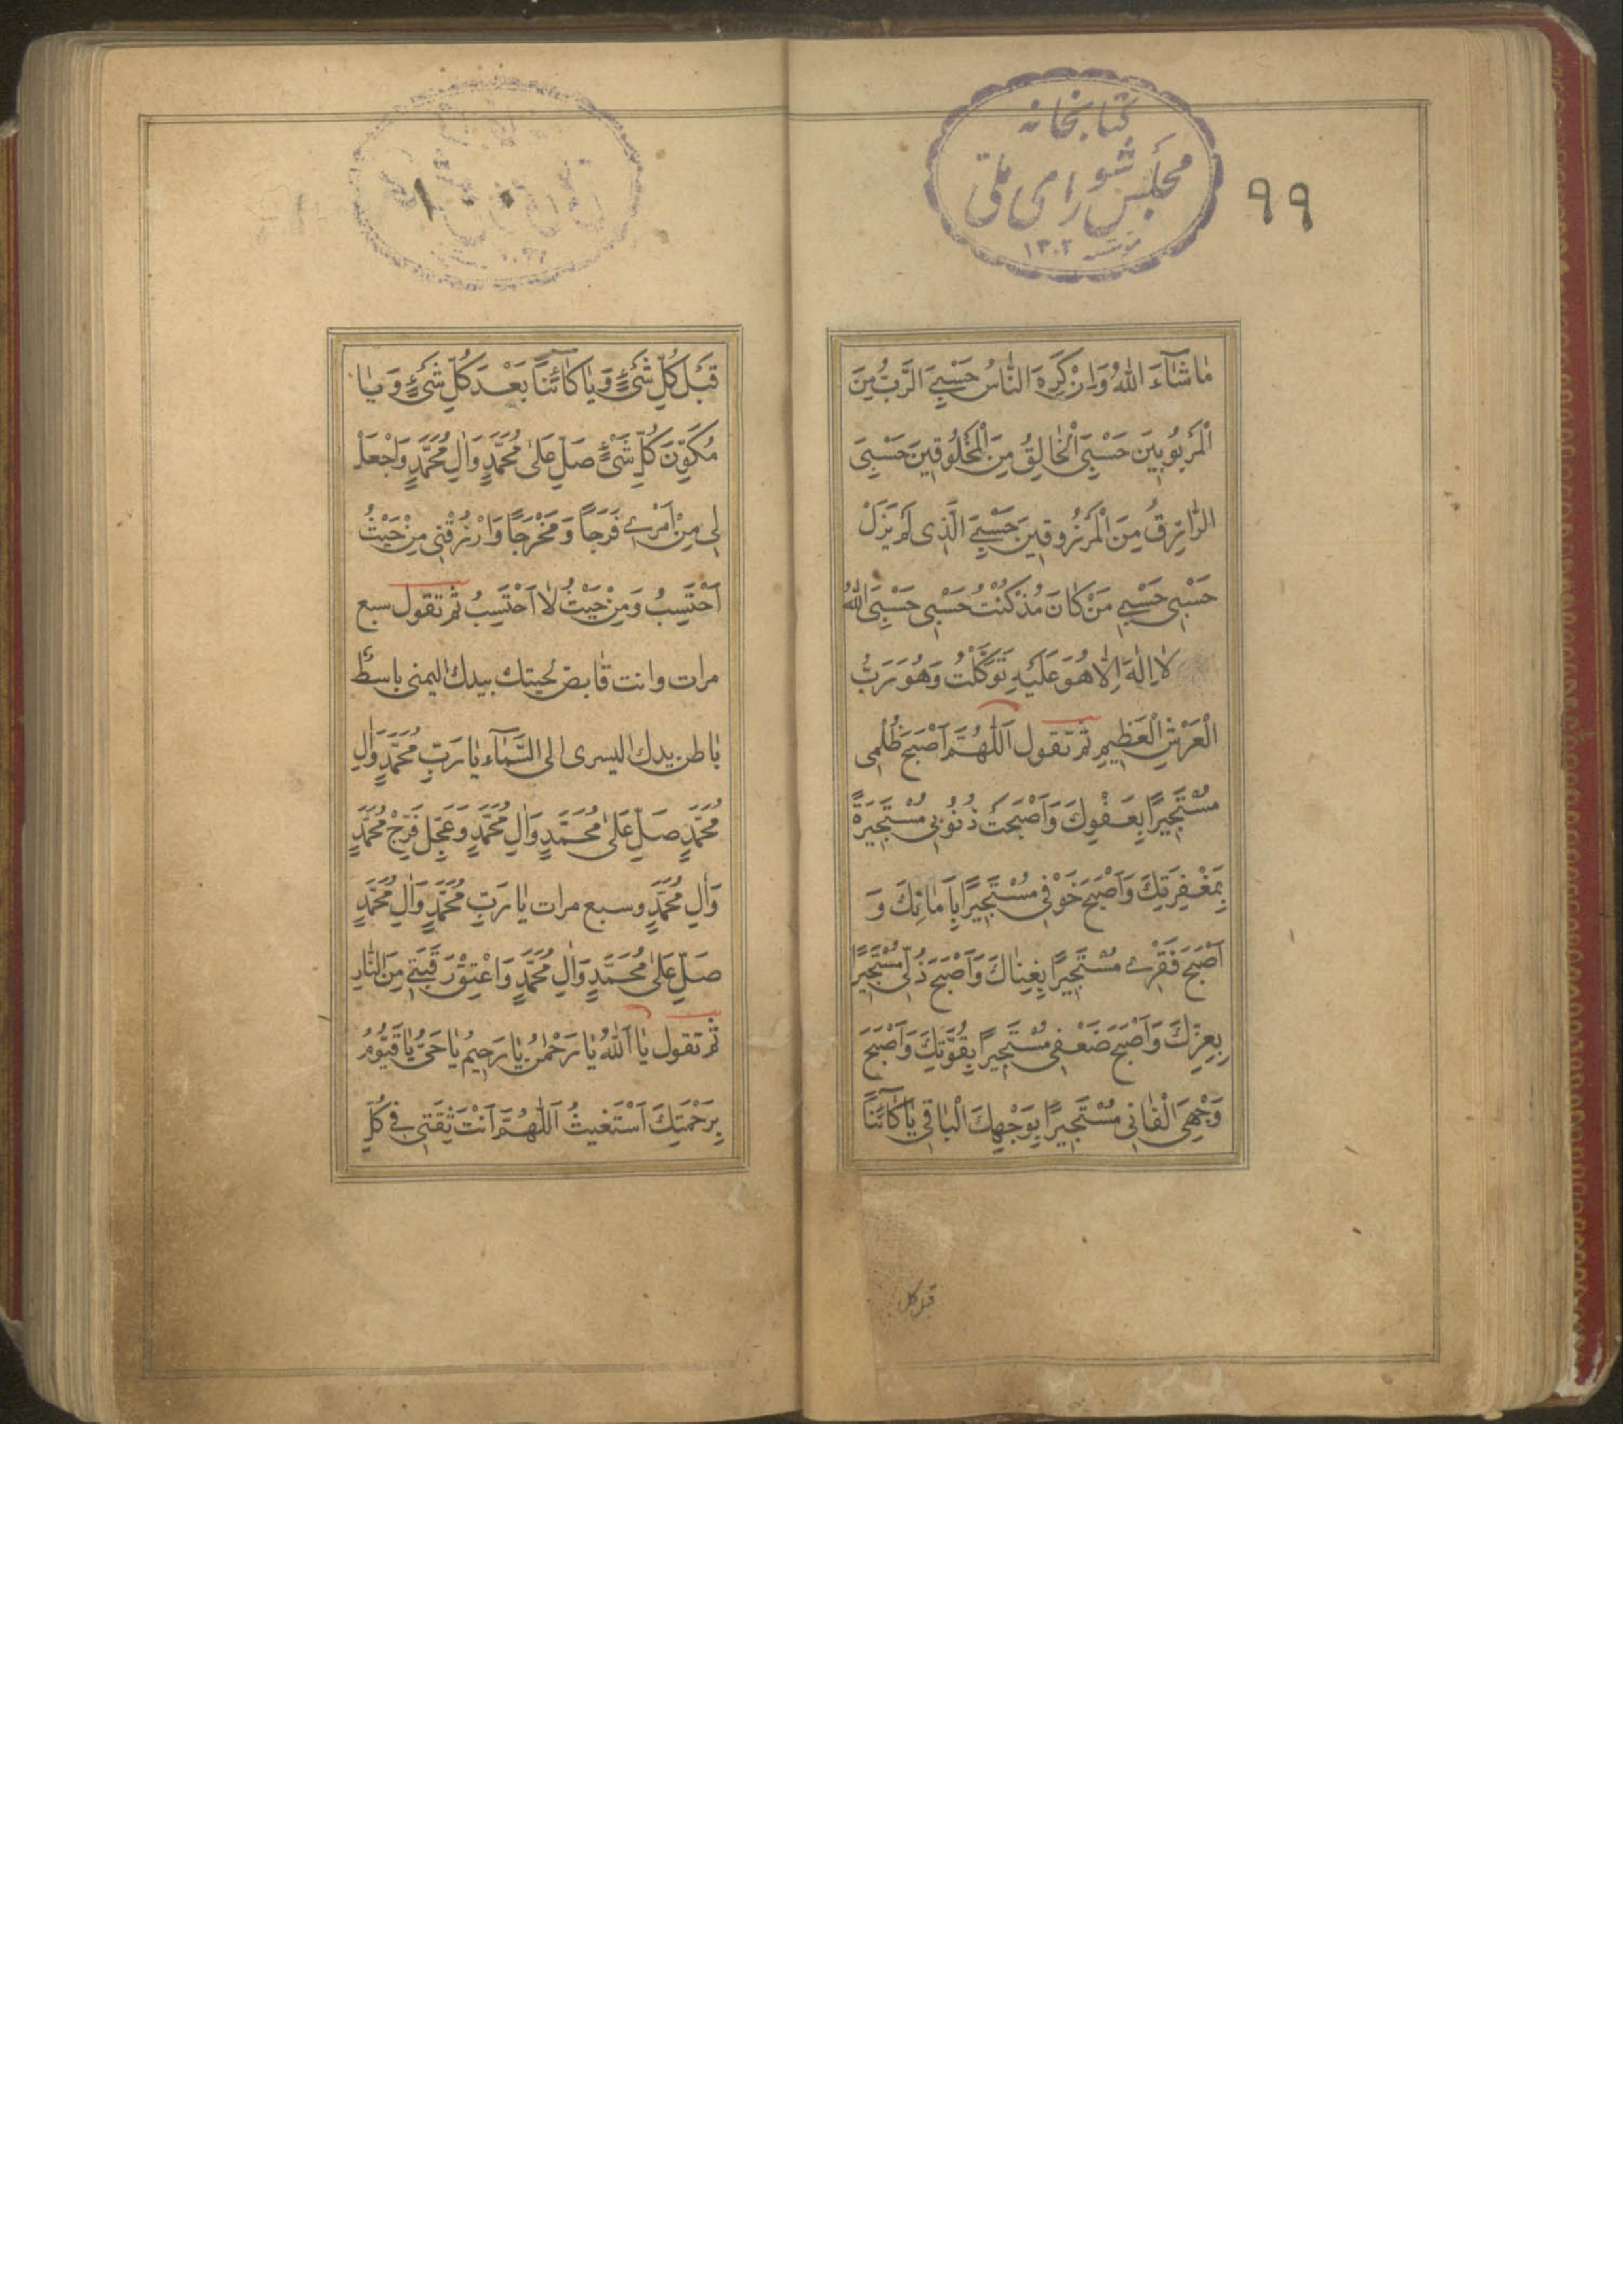 كتابخانه
مجلس شورای ملی
مؤسسه ۱۳۰۲
۹۹
مٰا شٰآءَ اللهُ وَاِنْ كَرِهَ النّٰاسُ حَسْبِيَ الرَّبُّ مِنَ
الْمَرْبُوبينَ حَسْبِيَ الْخٰالِقُ مِنَ الْمَخْلُوقينَ حَسْبِيَ
الرّٰازِقُ مِنَ الْمَرْزُوقينَ حَسْبِيَ الَّذى لَمْ يَزَلْ
حَسْبى حَسْبى مَنْ كٰانَ مُذْ كُنْتُ حَسْبى حَسْبِيَ اللهُ
لٰا اِلٰهَ اِلّٰا هُوَ عَلَيْهِ تَوَكَّلْتُ وَهُوَ رَبُّ
الْعَرْشِ الْعَظيمِ ثم تقول اَللّٰهُمَّ اَصْبَحَ ظُلْمى
مُسْتَجيرًا بِعَفْوِكَ وَاَصْبَحَتْ ذُنُوبى مُسْتَجيرَةً
بِمَغْفِرَتِكَ وَاَصْبَحَ خَوْفى مُسْتَجيرًا بِاَمٰانِكَ وَ
اَصْبَحَ فَقْرى مُسْتَجيرًا بِغِنٰاكَ وَاَصْبَحَ ذُلّى مُسْتَجيرًا
بِعِزِّكَ وَاَصْبَحَ ضَعْفى مُسْتَجيرًا بِقُوَّتِكَ وَاَصْبَحَ
وَجْهِىَ الْفٰانى مُسْتَجيرًا بِوَجْهِكَ الْبٰاقى يٰا كٰآئِنًا
قبل كل
۱۰۰
قَبْلَ كُلِّ شَىْءٍ وَيٰا كٰآئِنًا بَعْدَ كُلِّ شَىْءٍ وَيٰا
مُكَوِّنَ كُلِّ شَىْءٍ صَلِّ عَلىٰ مُحَمَّدٍ وَاٰلِ مُحَمَّدٍ وَاجْعَلْ
لى مِنْ اَمْرى فَرَجًا وَمَخْرَجًا وَارْزُقْنى مِنْ حَيْثُ
اَحْتَسِبُ وَمِنْ حَيْثُ لٰا اَحْتَسِبُ ثم تقول سبع
مرات وانت قابض لحيتك بيدك اليمنى باسط
باطن يدك اليسرى الى السَّمٰآء يٰا رَبِّ مُحَمَّدٍ وَاٰلِ
مُحَمَّدٍ صَلِّ عَلىٰ مُحَمَّدٍ وَاٰلِ مُحَمَّدٍ وَعَجِّلْ فَرَجَ مُحَمَّدٍ
وَاٰلِ مُحَمَّدٍ وسبع مرات يٰا رَبِّ مُحَمَّدٍ وَاٰلِ مُحَمَّدٍ
صَلِّ عَلىٰ مُحَمَّدٍ وَاٰلِ مُحَمَّدٍ وَاعْتِقْ رَقَبَتى مِنَ النّٰارِ
ثم تقول يٰا اَللهُ يٰا رَحْمٰنُ يٰا رَحيمُ يٰا حَىُّ يٰا قَيُّومُ
بِرَحْمَتِكَ اَسْتَغيثُ اَللّٰهُمَّ اَنْتَ ثِقَتى فى كُلِّ